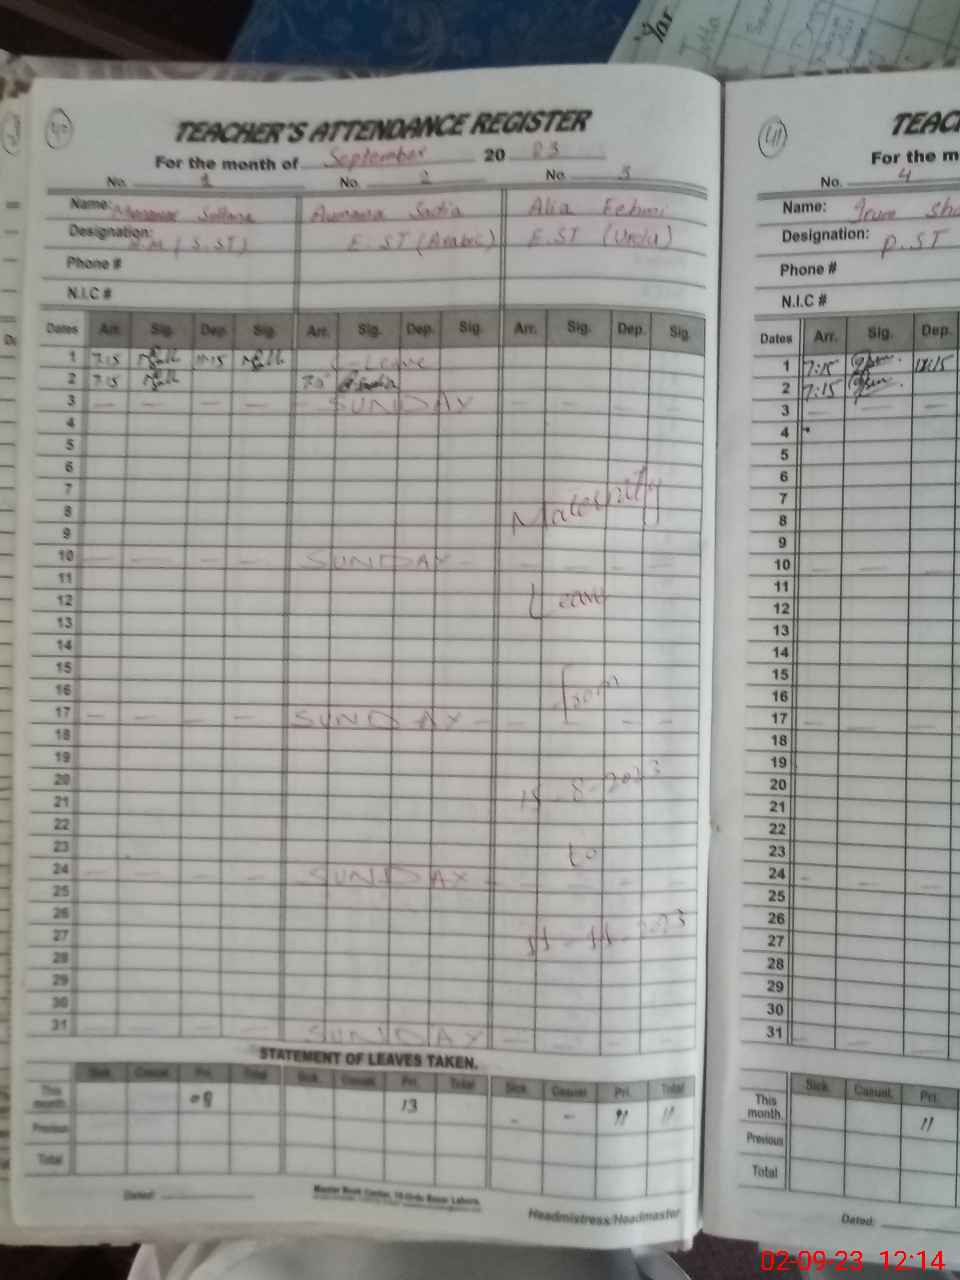 40
TEACHER'S ATTENDANCE REGISTER
For the month of September 20 23
No. 1 No. 2 No. 3
Name: Sultana Sadia Alia Fehmi
Designation: (S.ST) E.ST (Arabic) E.ST (Urdu)
Phone #
N.I.C #
Dates Arr. Sig. Dep. Sig. Arr. Sig. Dep. Sig. Arr. Sig. Dep. Sig.
1 7:15 11:15 Leave
2 7:15
3 — — — — SUNDAY — — —
4
5
6
7
8 Maternity
9
10 — — — — SUNDAY — — — — —
11
12 Leave
13
14
15
16 from
17 — — — — SUNDAY — — — —
18
19
20
21 -8-2023
22
23 to
24 — — — — SUNDAY — — — — —
25
26
27 11-11-2023
28
29
30
31 — — — — SUNDAY — — — —
STATEMENT OF LEAVES TAKEN.
Sick. Casual. Pri. Total Sick. Casual. Pri. Total Sick. Casual Pri. Total
This month. 08 13 - - 11 11
Previous
Total
Dated:
Headmistress/Headmaster
41
TEAC
For the m
No. 4
Name: Irum Sha
Designation: P.ST
Phone #
N.I.C #
Dates Arr. Sig. Dep.
1 7:15
2 7:15
3 — — —
4
5
6
7
8
9
10 — — —
11
12
13
14
15
16
17 — —
18
19
20
21
22
23
24 - — —
25
26
27
28
29
30
31 — — —
Sick. Casual. Pri.
This month. 11
Previous
Total
Dated:
02-09-23 12:14